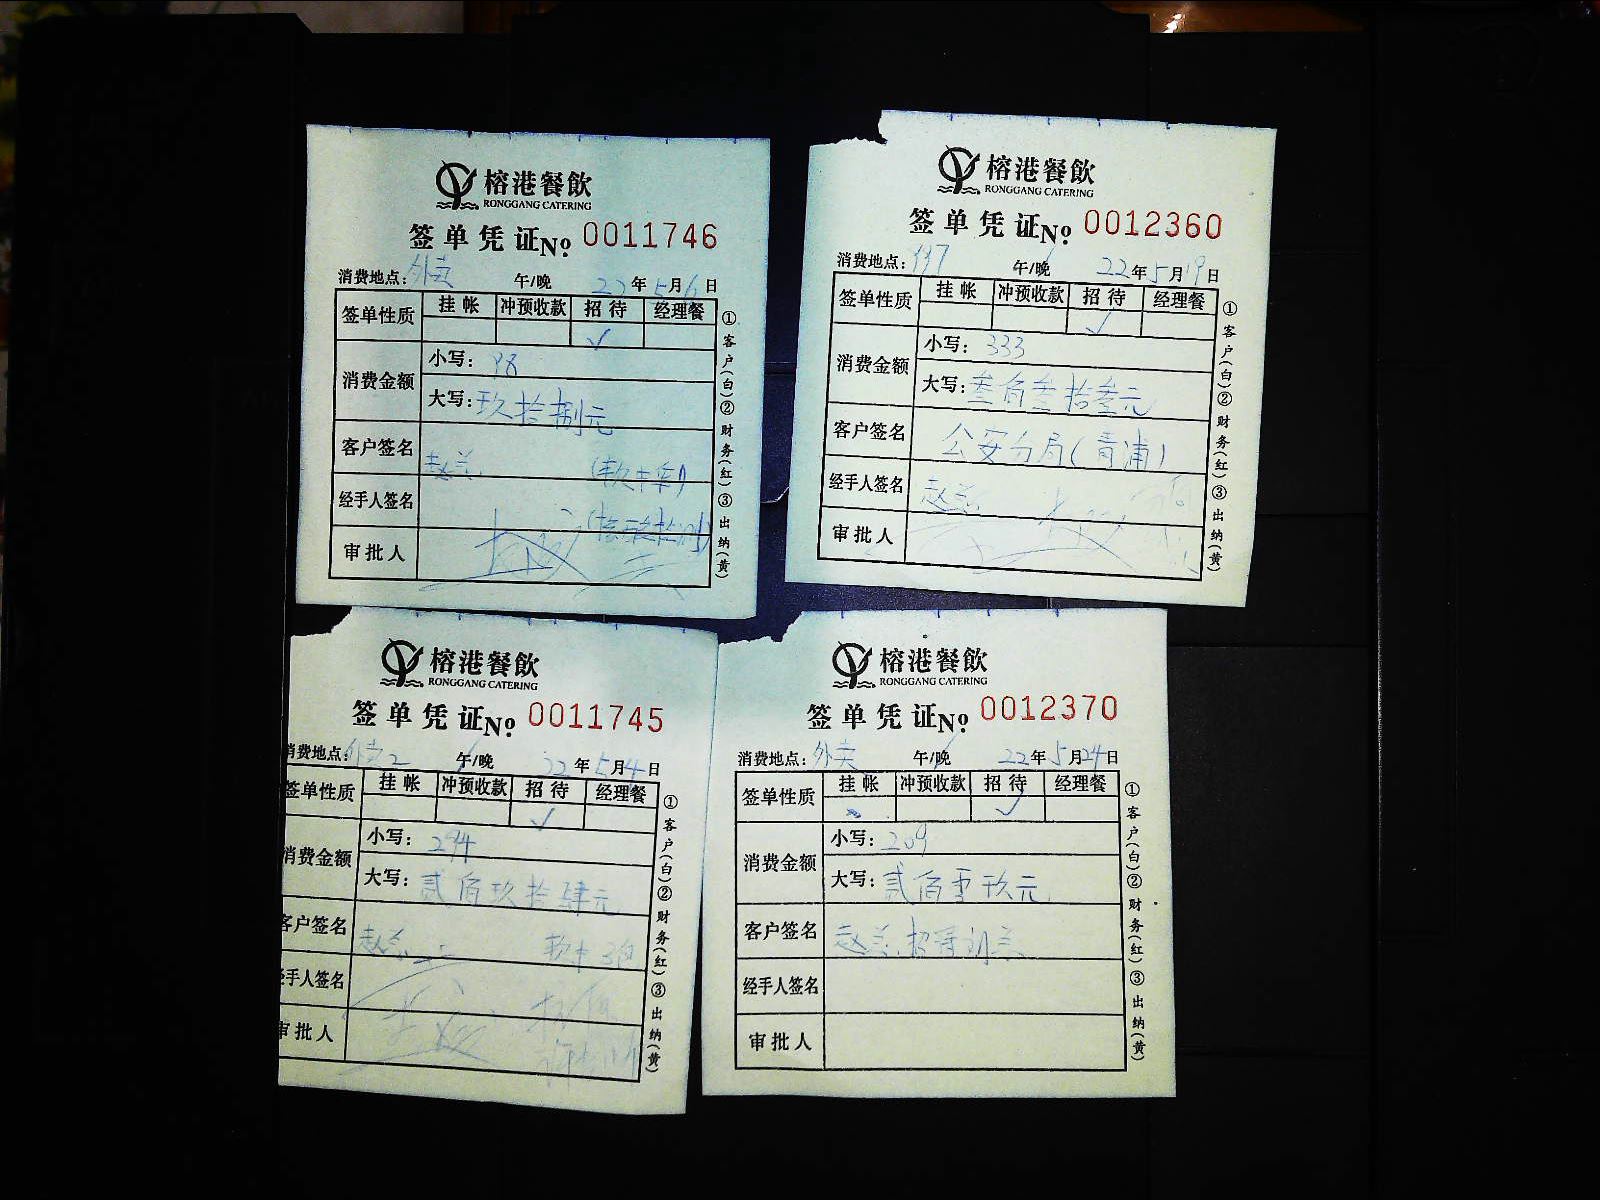 榕港餐飲
RONGGANG CATERING
签单凭证 No. 0011746
消费地点：外卖 午/晚 22年5月6日
签单性质 挂帐 冲预收款 招待 经理餐
✓
消费金额 小写：98
大写：玖拾捌元
客户签名 赵兰
经手人签名
审批人
①客户（白）②财务（红）③出纳（黄）
榕港餐飲
RONGGANG CATERING
签单凭证 No. 0012360
消费地点： 午/晚 22年5月19日
签单性质 挂帐 冲预收款 招待 经理餐
✓
消费金额 小写：333
大写：叁佰叁拾叁元
客户签名 公安分局（青浦）
经手人签名 赵兰
审批人
①客户（白）②财务（红）③出纳（黄）
榕港餐飲
RONGGANG CATERING
签单凭证 No. 0011745
消费地点：外卖2 午/晚 22年5月4日
签单性质 挂帐 冲预收款 招待 经理餐
✓
消费金额 小写：294
大写：贰佰玖拾肆元
客户签名 赵兰
经手人签名
审批人
①客户（白）②财务（红）③出纳（黄）
榕港餐飲
RONGGANG CATERING
签单凭证 No. 0012370
消费地点：外卖 午/晚 22年5月24日
签单性质 挂帐 冲预收款 招待 经理餐
✓
消费金额 小写：209
大写：贰佰零玖元
客户签名 赵兰
经手人签名
审批人
①客户（白）②财务（红）③出纳（黄）